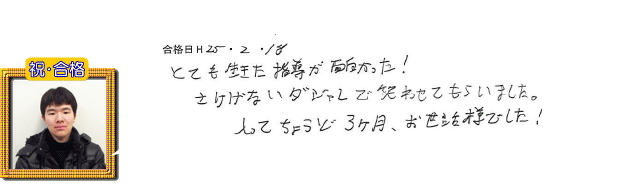 合格日 H25・2・18
祝・合格
とても生きた指導が面白かった！
さりげないダジャレで笑わせてもらいました。
ちょうど3ヶ月、お世話様でした！